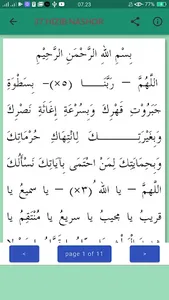 07.23
21%
21 HIZIB NASHOR
بِسْمِ اللهِ الرَّحْمٰنِ الرَّحِيْمِ
اَللّٰهُمَّ – رَبَّنَا (٥×)- بِسَطْوَةِ
جَبَرُوْتِ قَهْرِكَ وَبِسُرْعَةِ إِغَاثَةِ نَصْرِكَ
وَبِغَيْرَتِكَ لِانْتِهَاكِ حُرُمَاتِكَ
وَبِحِمَايَتِكَ لِمَنْ احْتَمَى بِآيَاتِكَ نَسْأَلُكَ
اَللّٰهُمَّ – يَا اللهُ (٣×) – يَا سَمِيْعُ يَا
قَرِيْبُ يَا مُجِيْبُ يَا سَرِيْعُ يَا مُنْتَقِمُ يَا
<
page 1 of 11
>